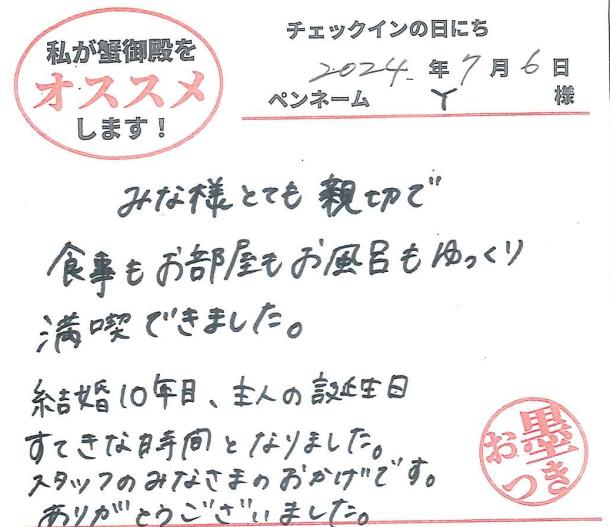 私が蟹御殿を
オススメ
します！
チェックインの日にち
2024.年7月6日
ペンネーム Y 様
みな様とても親切で
食事もお部屋もお風呂もゆっくり
満喫できました。
結婚10年目、主人の誕生日
すてきな時間となりました。
スタッフのみなさまのおかげです。
ありがとうございました。
お墨つき